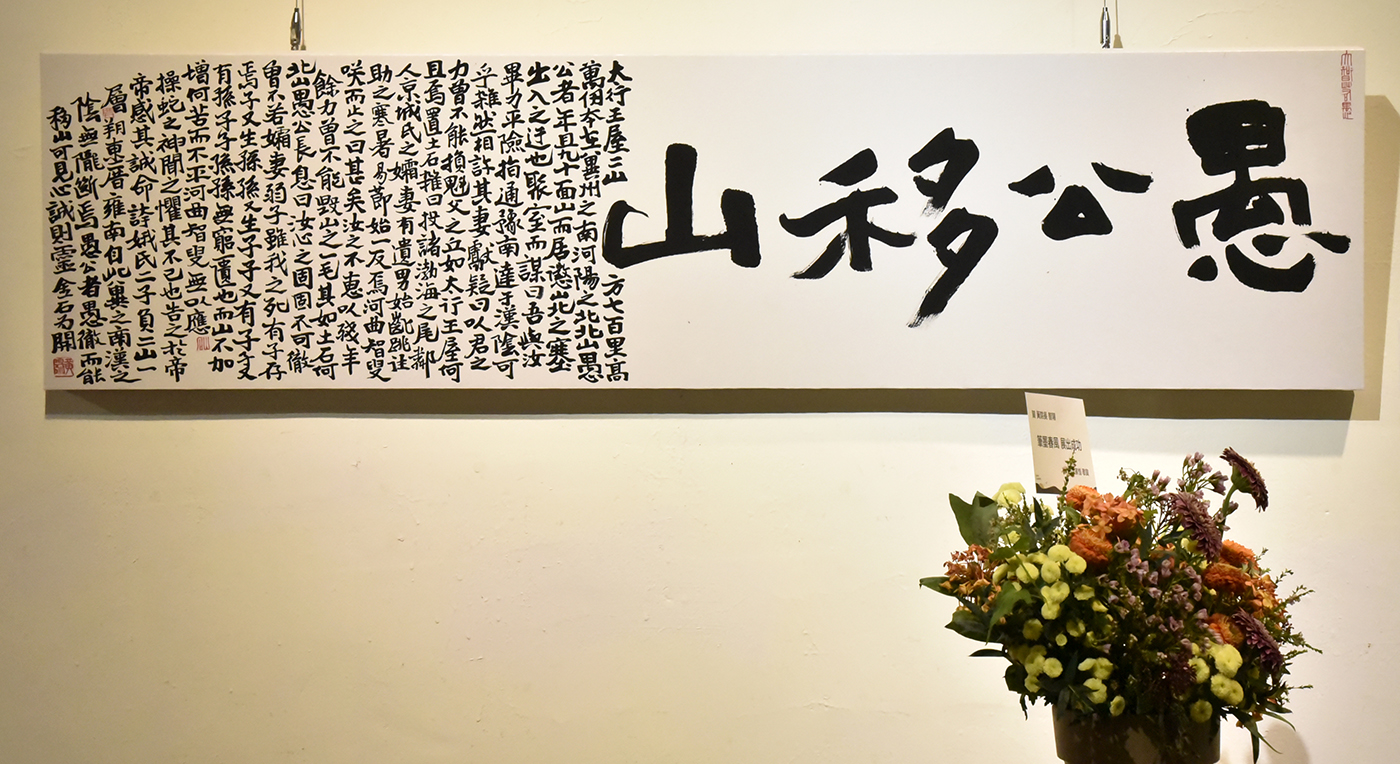 愚公移山
太行王屋二山 方七百里高
萬仞本在冀州之南河陽之北北山愚
公者年且九十面山而居懲山北之塞
出入之迂也聚室而謀曰吾與汝
畢力平險指通豫南達于漢陰可
乎雜然相許其妻獻疑曰以君之
力曾不能損魁父之丘如太行王屋何
且焉置土石雜曰投諸渤海之尾鄰
人京城氏之孀妻有遺男始齔跳往
助之寒暑易節始一反焉河曲智叟
咲而止之曰甚矣汝之不惠以殘年
餘力曾不能毀山之一毛其如土石何
北山愚公長息曰汝心之固固不可徹
曾不若孀妻弱子雖我之死有子存
焉子又生孫孫又生子子又有子子又
有孫子子孫孫無窮匱也而山不加
增何苦而不平河曲智叟無以應
操蛇之神聞之懼其不已也告之於帝
帝感其誠命誇娥氏二子負二山一
層朔東厝雍南自此冀之南漢之
陰無隴斷焉愚公者愚徹而能
移山可見心誠則靈金石為開
筆墨春風 展出成功